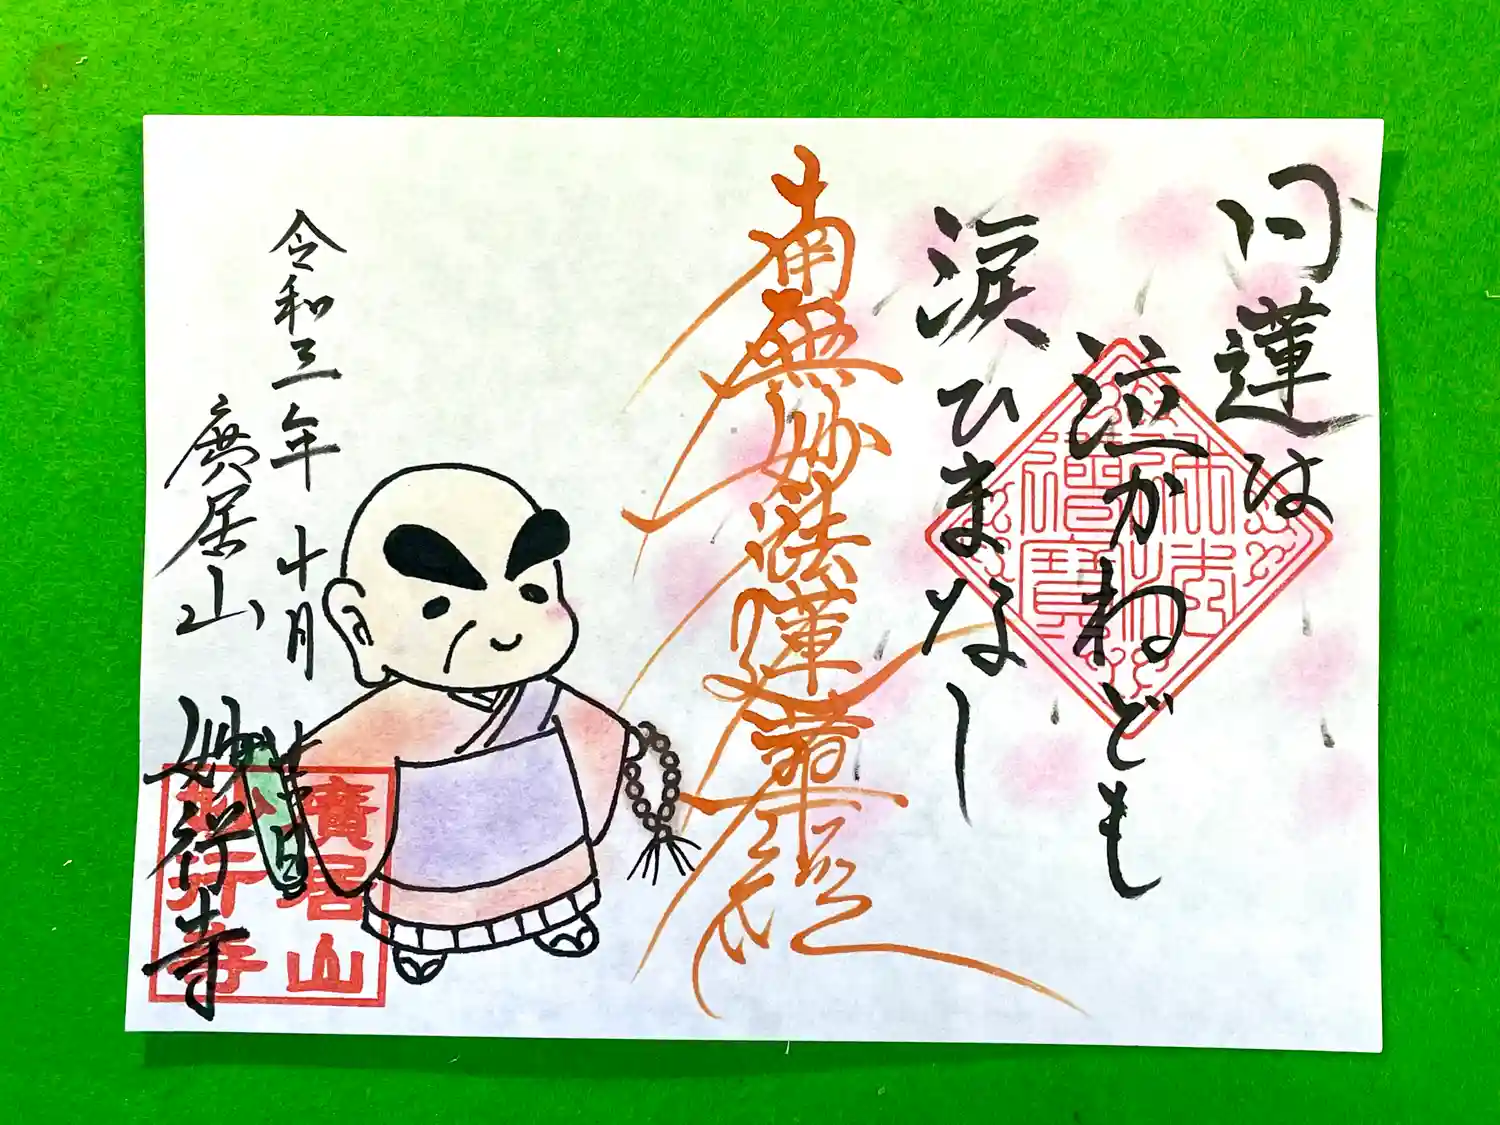 日蓮は
泣かねども
涙ひまなし
南無妙法蓮華経
令和三年十月廿五日
廣居山
妙行寺
仏法僧寶
廣居山
妙行寺